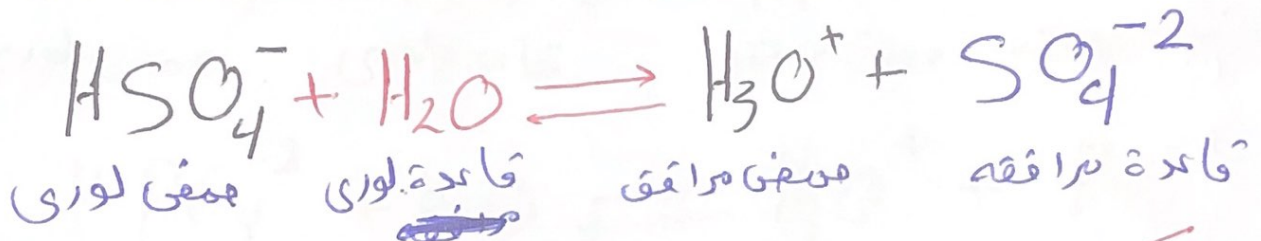 HSO₄⁻ + H₂O ⇌ H₃O⁺ + SO₄⁻²
حمض لوري قاعدة لوري حمض مرافق قاعدة مرافقه